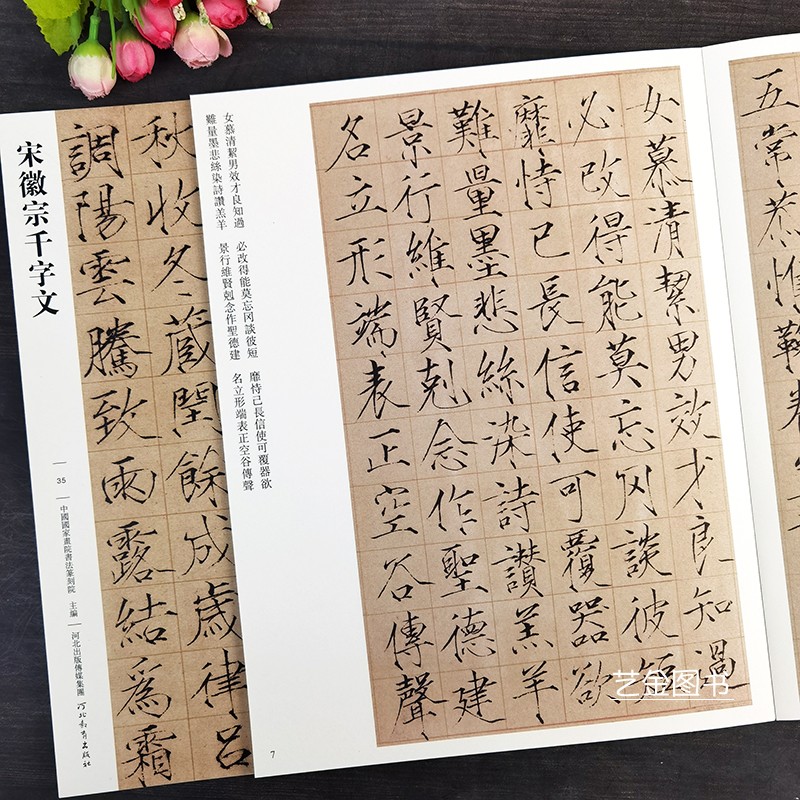 宋徽宗千字文
35
中國國家畫院書法篆刻院 主編
河北出版傳媒集團 河北教育出版社
秋收冬藏閏餘成歲律吕
調陽雲騰致雨露結爲霜
女慕清絜男效才良知過 必改得能莫忘罔談彼短 靡恃己長信使可覆器欲
難量墨悲絲染詩讚羔羊 景行維賢剋念作聖德建 名立形端表正空谷傳聲
7
五常恭惟鞠養
女慕清絜男效才良知過
必改得能莫忘罔談彼短
靡恃己長信使可覆器欲
難量墨悲絲染詩讚羔羊
景行維賢剋念作聖德建
名立形端表正空谷傳聲
艺金图书